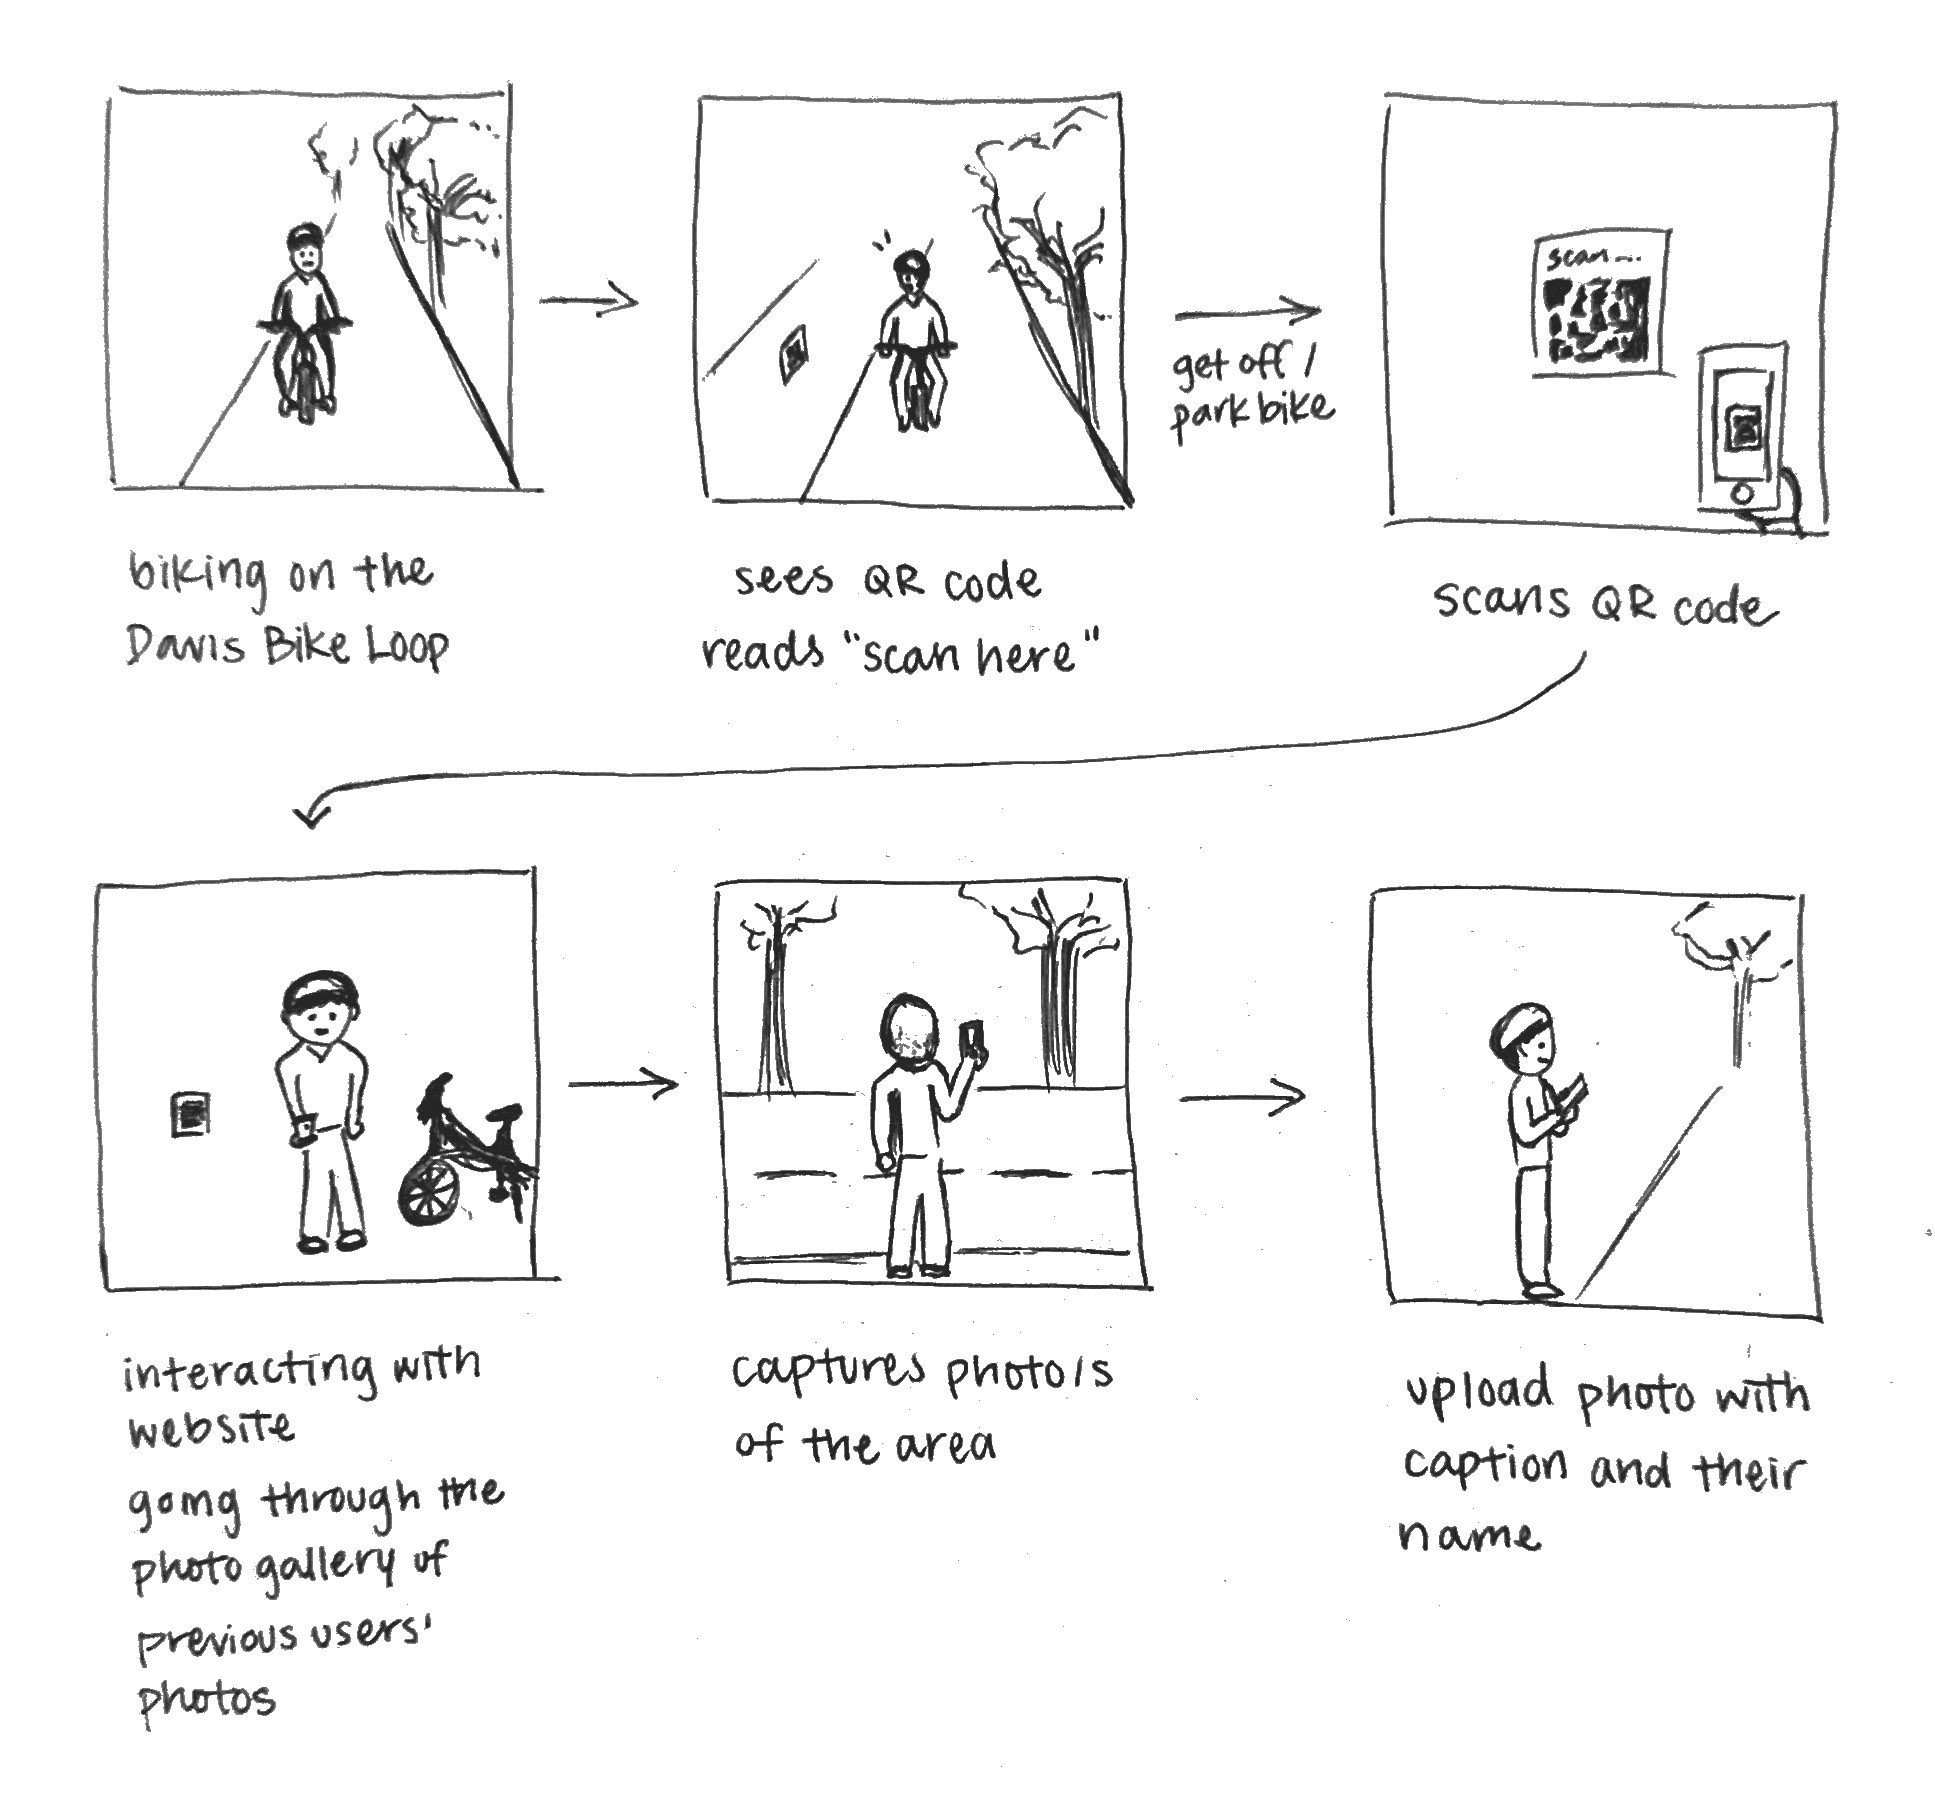 biking on the
Davis Bike Loop
sees QR code
reads "scan here"
get off /
park bike
scan
scans QR code
interacting with
website
going through the
photo gallery of
previous users'
photos
captures photo/s
of the area
upload photo with
caption and their
name